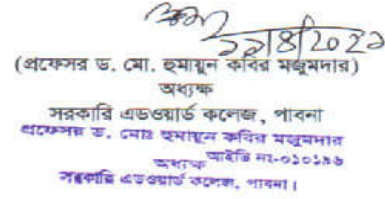 ১৯/৪/2022
(প্রফেসর ড. মো. হুমায়ুন কবির মজুমদার)
অধ্যক্ষ
সরকারি এডওয়ার্ড কলেজ, পাবনা
প্রফেসর ড. মোঃ হুমায়ুন কবির মজুমদার
আইডি নং-০১০১৯৬
অধ্যক্ষ
সরকারি এডওয়ার্ড কলেজ, পাবনা।